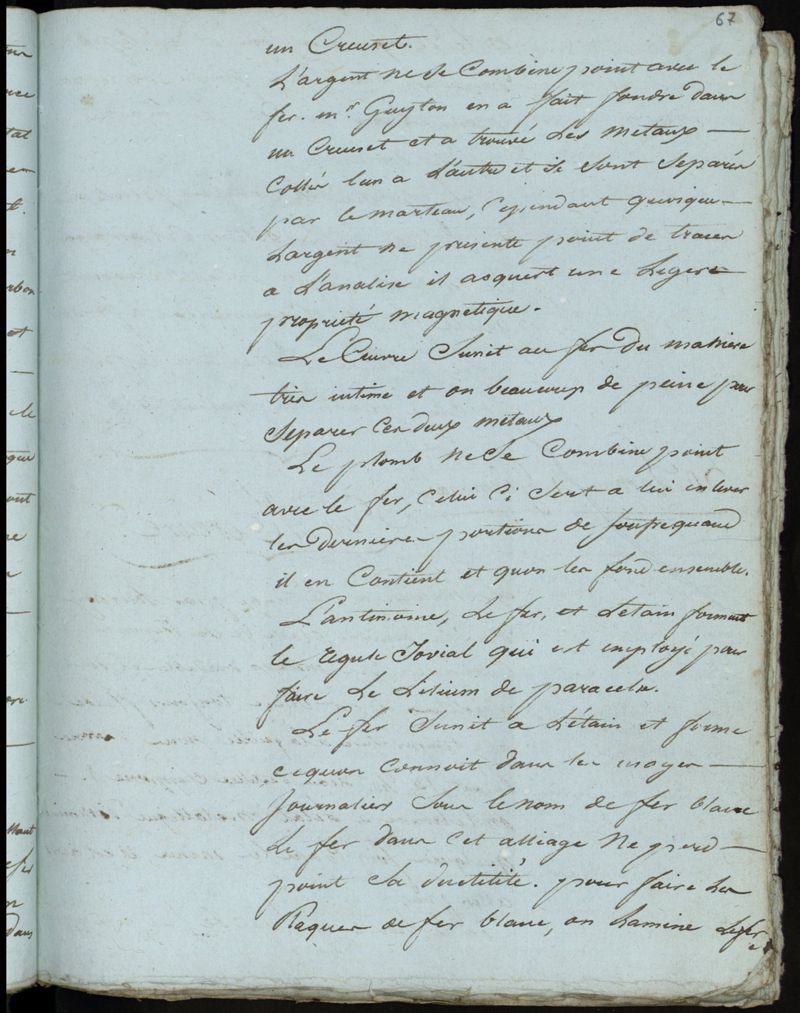 67
un Creuset.
L'argent ne se Combine point avec le
fer. mr Guyton en a fait fondre dans
un Creuset et a trouvé Les metaux —
Collés lun a L'autre et ils Sont Separés
par le marteau, Cependant quoique —
Largent ne presente point de traces
a L'analise il acquert une Legere
proprieté magnetique.
Le Cuivre Sunit au fer du maniere
très intime et on beaucoup de peine pour
Separer Ces deux metaux
Le plomb ne se Combine point
avec le fer, Celui Ci Sert a lui enlever
les dernieres portions de soufre quand
il en Contient et quon les fond ensemble.
L'antimoine, Le fer, et Letain forment
le regule Jovial qui est employé pour
faire Le Lilium de paracelse.
Le fer Sunit a L'étain et forme
cequon Connoit dans les usages —
Journalier Sous le nom de fer blanc
Le fer dans Cet alliage ne perd —
point Sa ductilité. pour faire Les
Plaques de fer blanc, on Lamine Le fer
tat
rbon
et
le
que
Dans